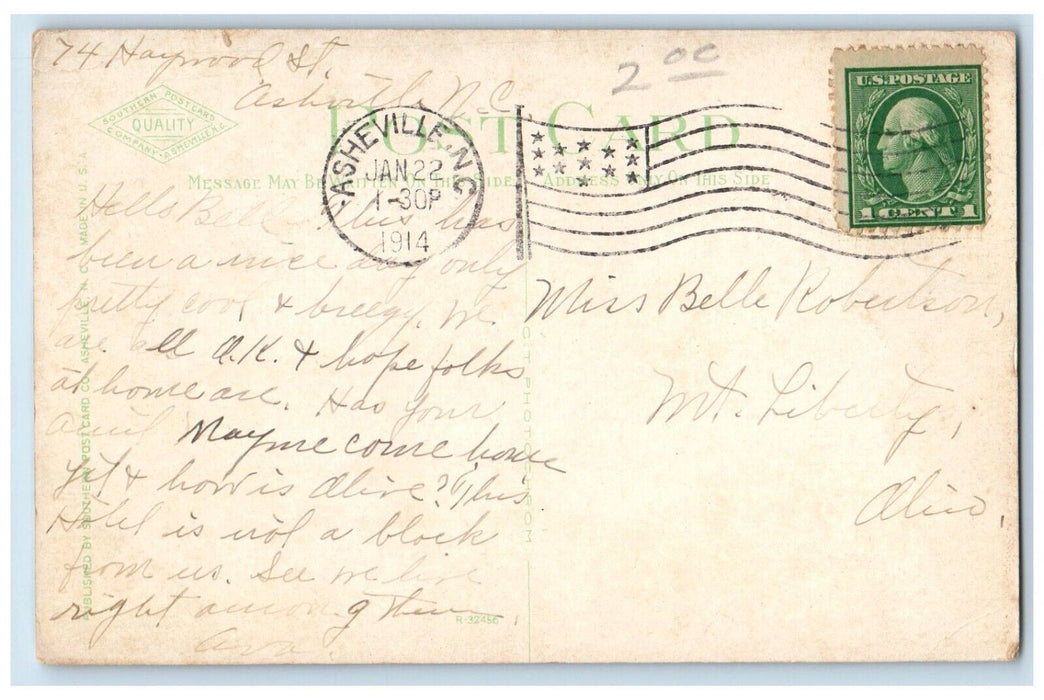 74 Haywood St.
Asheville N.C.
2 00
SOUTHERN POSTCARD
QUALITY
COMPANY-ASHEVILLE.N.C.
POST CARD
ASHEVILLE, N.C.
JAN 22
1-30P
1914
U.S. POSTAGE
1 CENT 1
MESSAGE MAY BE WRITTEN ON THIS SIDE
ADDRESS ONLY ON THIS SIDE
Hello Belle. This has
been a nice day only
pretty cool & breezy. We
are all O.K. & hope folks
at home are. Has your
Aunt Mayme come home
yet & how is Olive? This
Hotel is not a block
from us. See we live
right among them
Ava.
Miss Belle Robertson,
Mt. Liberty,
Ohio,
PUBLISHED BY SOUTHERN POST CARD CO. ASHEVILLE, N. C. MADE IN U. S. A.
R-32456